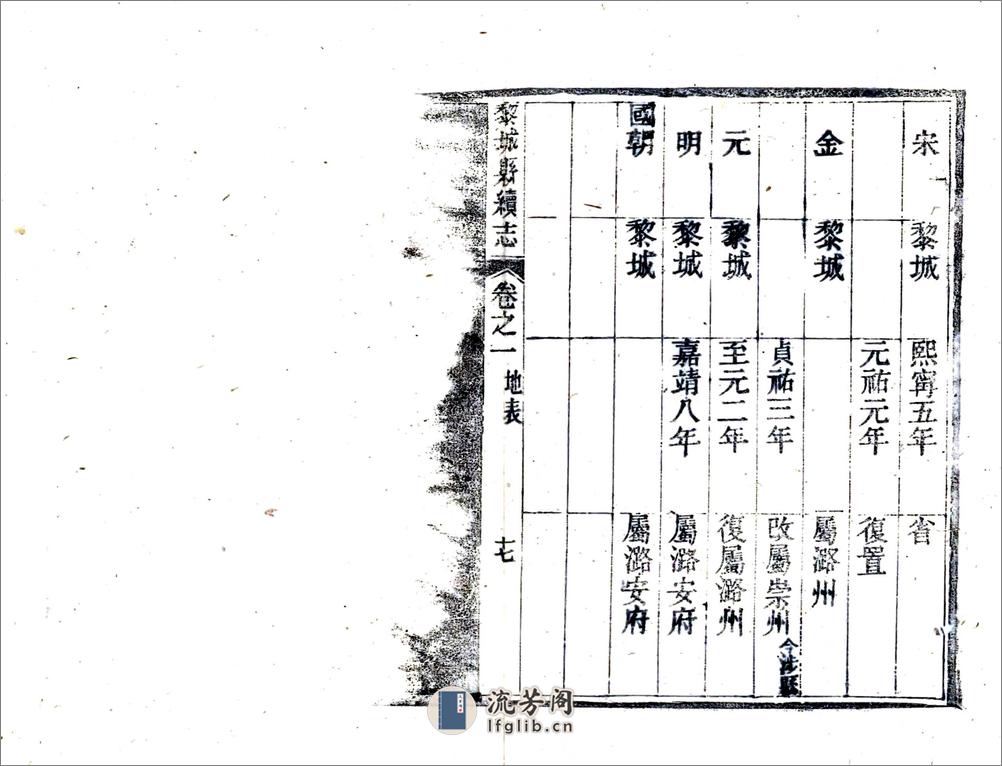 宋 黎城 熙寧五年 省
元祐元年 復置
金 黎城 屬潞州
貞祐三年 改屬崇州 今涉縣
元 黎城 至元二年 復屬潞州
明 黎城 嘉靖八年 屬潞安府
國朝 黎城 屬潞安府
黎城縣續志 卷之一 地表 十七
流芳阁
lfglib.cn